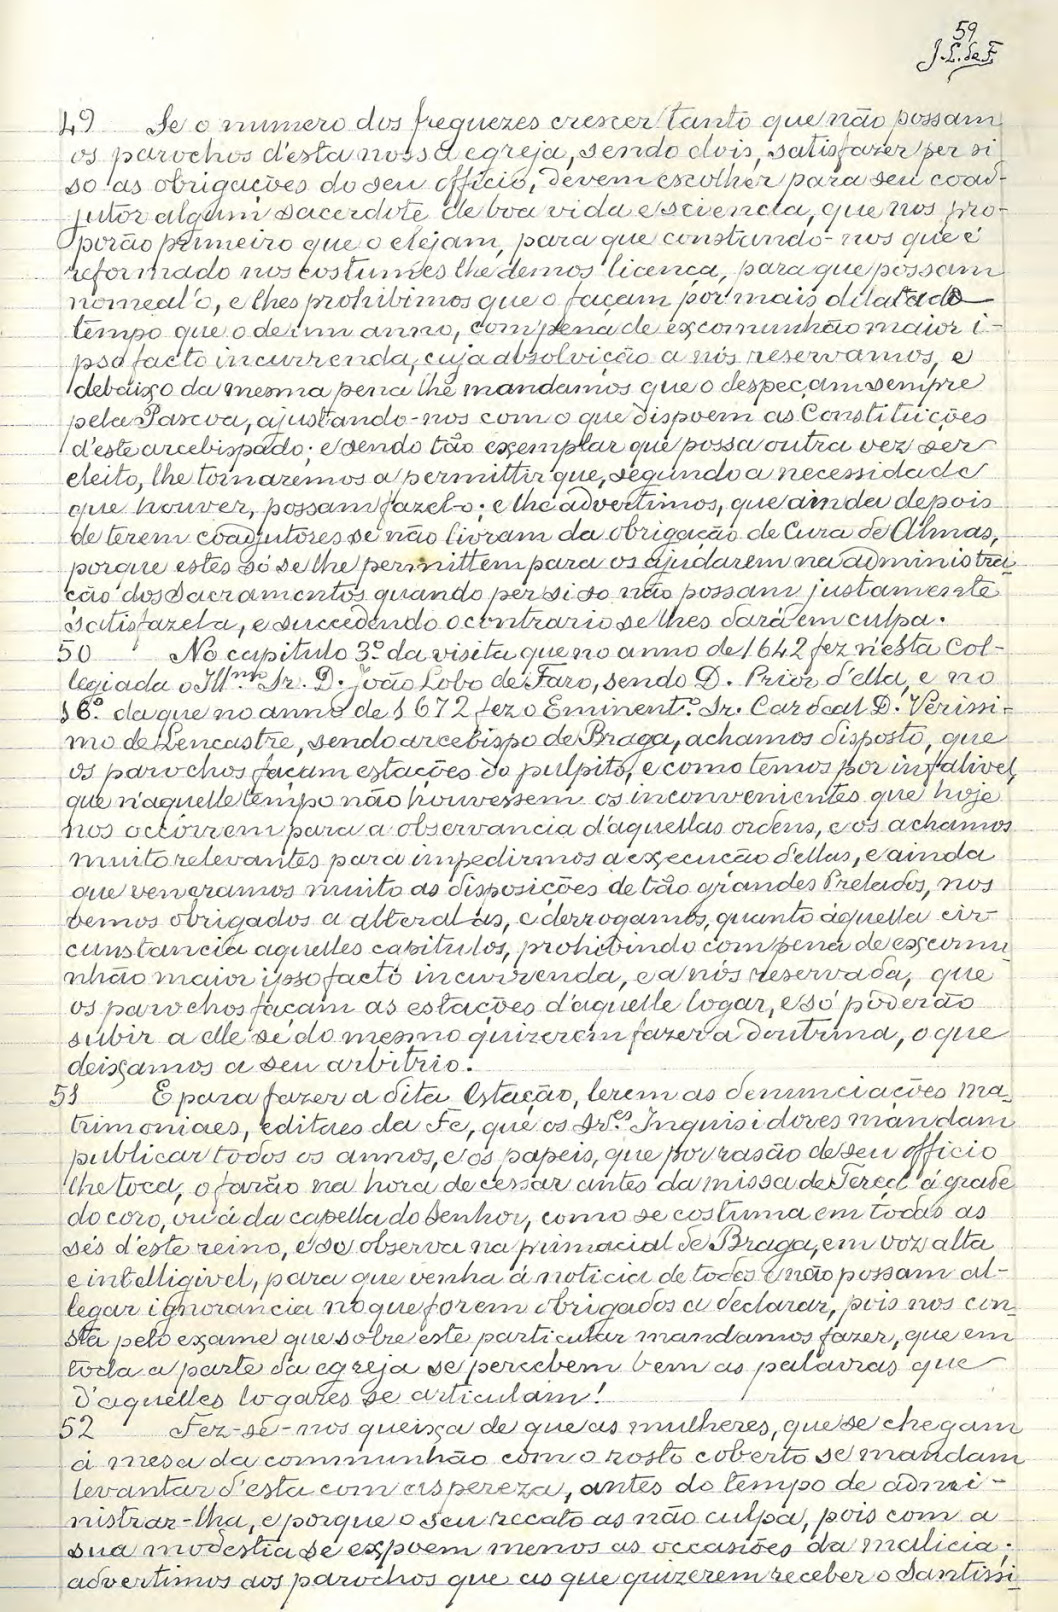 59
J. L. de F.
49 Se o numero dos freguezes crescer tanto que não possam
os parochos d'esta nossa egreja, sendo dois, satisfazer per si
so as obrigações do seu officio, devem escolher para seu coad-
jutor algum sacerdote de boa vida e sciencia, que nos pro-
porão primeiro que o elejam, para que constando-nos que é
reformado nos costumes lhe demos licença, para que possam
nomeal'o, e lhes prohibimos que o façam por mais dilatado
tempo que o de um anno, com pena de excomunhão maior i-
pso facto incurrenda, cuja absolvição a nós reservamos, e
debaixo da mesma pena lhe mandamos que o despeçam sempre
pela Pascoa, ajustando-nos com o que dispoem as Constituições
d'este arcebispado; e sendo tão exemplar que possa outra vez ser
eleito, lhe tornaremos a permittir que, segundo a necessidade
que houver, possam fazel-o; e lhe advertimos, que ainda depois
de terem coadjutores se não livram da obrigação de Cura de Almas,
porque estes só se lhe permittem para os ajudarem na administra-
ção dos Sacramentos quando per si so não possam justamente
satisfazela, e succedendo o contrario se lhes dará em culpa.
50 No capitulo 3.º da visita que no anno de 1642 fez n'esta Col-
legiada o Ill.mo Sr. D. João Lobo de Faro, sendo D. Prior d'ella, e no
16.º da que no anno de 1672 fez o Eminent.º Sr. Cardeal D. Verissi-
mo de Lencastre, sendo arcebispo de Braga, achamos disposto, que
os parochos façam estações do pulpito, e como temos por infalivel,
que n'aquelle tempo não houvessem os inconvenientes que hoje
nos occorrem para a observancia d'aquellas ordens, e os achamos
muito relevantes para impedirmos a execução d'ellas, e ainda
que veneramos muito as disposições de tão grandes Prelados, nos
vemos obrigados a alteral-as, e derrogamos, quanto áquella cir
cunstancia aquelles capitulos, prohibindo com pena de excomu
nhão maior ipso facto incurrenda, e a nós reservada, que
os parochos façam as estações d'aquelle logar, e só poderão
subir a elle se do mesmo quizerem fazer a doutrina, o que
deixamos a seu arbitrio.
51 E para fazer a dita Estação, lerem as denunciações ma-
trimoniaes, editaes da Fe, que os Sr.es Inquisidores mandam
publicar todos os annos, e os papeis, que por rasão de seu officio
lhe toca, o farão na hora de cessar antes da missa de Terça á grade
do coro, ou á da capella do Senhor, como se costuma em todas as
sés d'este reino, e se observa na primacial de Braga, em voz alta
e intelligivel, para que venha á noticia de todos e não possam al-
legar ignorancia no que forem obrigados a declarar, pois nos con-
sta pelo exame que sobre este particular mandamos fazer, que em
toda a parte da egreja se percebem bem as palavras que
d'aquelles logares se articulam!
52 Fez-se-nos queixa de que as mulheres, que se chegam
á mesa da communhão com o rosto coberto se mandam
levantar d'esta com aspereza, antes do tempo de admi-
nistrar-lha, e porque o seu recato as não culpa, pois com a
sua modestia se expoem menos as occasiões da malicia;
advertimos aos parochos que as que quizerem receber o Santissi-